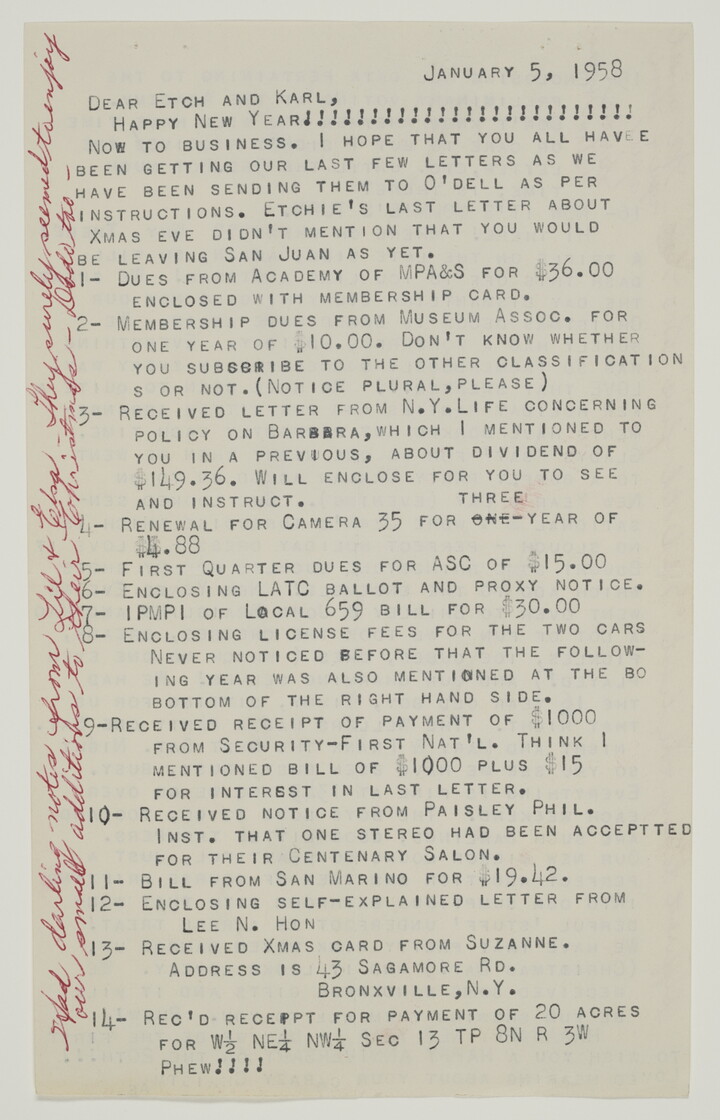 JANUARY 5, 1958
DEAR ETCH AND KARL,
HAPPY NEW YEAR!!!!!!!!!!!!!!!!!!!!!!!!!!!
NOW TO BUSINESS. I HOPE THAT YOU ALL HAVEE
BEEN GETTING OUR LAST FEW LETTERS AS WE
HAVE BEEN SENDING THEM TO O'DELL AS PER
INSTRUCTIONS. ETCHIE'S LAST LETTER ABOUT
XMAS EVE DIDN'T MENTION THAT YOU WOULD
BE LEAVING SAN JUAN AS YET.
1- DUES FROM ACADEMY OF MPA&S FOR $36.00
ENCLOSED WITH MEMBERSHIP CARD.
2- MEMBERSHIP DUES FROM MUSEUM ASSOC. FOR
ONE YEAR OF $10.00. DON'T KNOW WHETHER
YOU SUBSCRIBE TO THE OTHER CLASSIFICATION
S OR NOT.(NOTICE PLURAL,PLEASE)
3- RECEIVED LETTER FROM N.Y.LIFE CONCERNING
POLICY ON BARBARA,WHICH I MENTIONED TO
YOU IN A PREVIOUS, ABOUT DIVIDEND OF
$149.36. WILL ENCLOSE FOR YOU TO SEE
AND INSTRUCT.
THREE
4- RENEWAL FOR CAMERA 35 FOR ONE-YEAR OF
$4.88
5- FIRST QUARTER DUES FOR ASC OF $15.00
6- ENCLOSING LATC BALLOT AND PROXY NOTICE.
7- IPMPI OF LOCAL 659 BILL FOR $30.00
8- ENCLOSING LICENSE FEES FOR THE TWO CARS
NEVER NOTICED BEFORE THAT THE FOLLOW-
ING YEAR WAS ALSO MENTIONED AT THE BO
BOTTOM OF THE RIGHT HAND SIDE.
9-RECEIVED RECEIPT OF PAYMENT OF $1000
FROM SECURITY-FIRST NAT'L. THINK I
MENTIONED BILL OF $1000 PLUS $15
FOR INTEREST IN LAST LETTER.
10- RECEIVED NOTICE FROM PAISLEY PHIL.
INST. THAT ONE STEREO HAD BEEN ACCEPTTED
FOR THEIR CENTENARY SALON.
11- BILL FROM SAN MARINO FOR $19.42.
12- ENCLOSING SELF-EXPLAINED LETTER FROM
LEE N. HON
13- RECEIVED XMAS CARD FROM SUZANNE.
ADDRESS IS 43 SAGAMORE RD.
BRONXVILLE,N.Y.
14- REC'D RECEPPT FOR PAYMENT OF 20 ACRES
FOR W½ NE¼ NW¼ SEC 13 TP 8N R 3W
PHEW!!!!
Had darling notes from Lil & Elsa - They surely seemed to enjoy
our small additions to their Christmas - too -